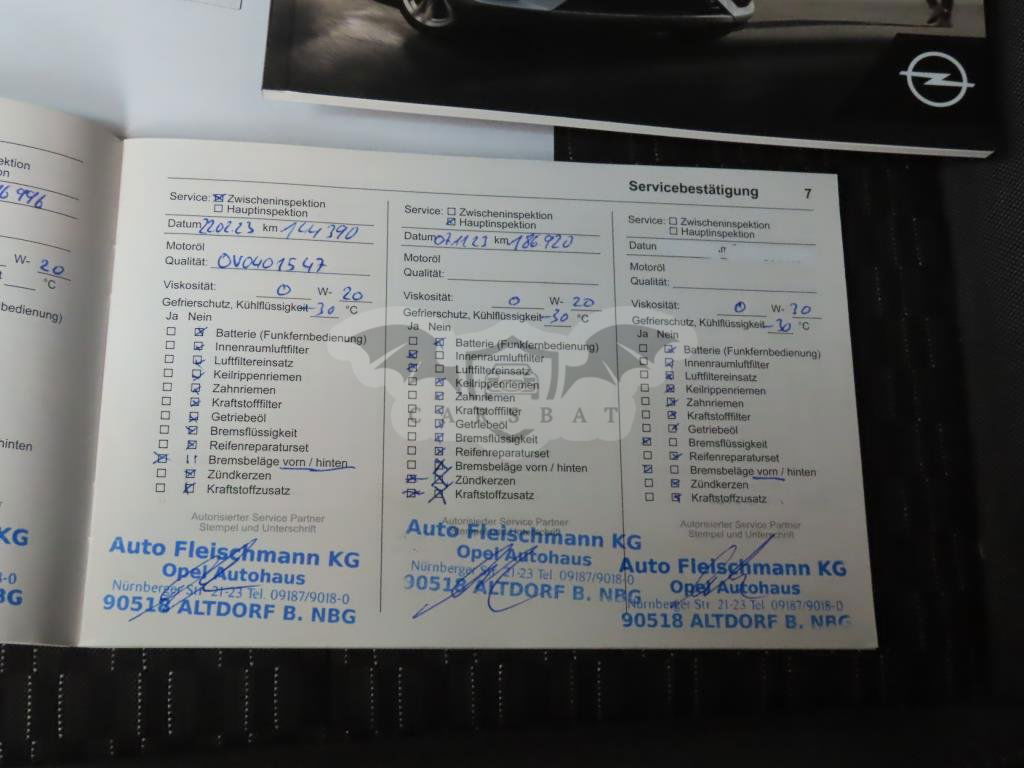 ektion
on
6 996
W- 20
°C
bedienung)
hinten
ce Partner
erschrift
KG
8-0
BG
Servicebestätigung 7
Service: ☒ Zwischeninspektion
☐ Hauptinspektion
Datum 220223 km 144 390
Motoröl
Qualität: OV0401547
Viskosität: 0 W- 20
Gefrierschutz, Kühlflüssigkeit -30 °C
Ja Nein
Batterie (Funkfernbedienung)
Innenraumluftfilter
Luftfiltereinsatz
Keilrippenriemen
Zahnriemen
Kraftstofffilter
Getriebeöl
Bremsflüssigkeit
Reifenreparaturset
Bremsbeläge vorn / hinten
Zündkerzen
Kraftstoffzusatz
Autorisierter Service Partner
Stempel und Unterschrift
Auto Fleischmann KG
Opel Autohaus
Nürnberger Str. 21-23 Tel. 09187/9018-0
90518 ALTDORF B. NBG
Service: ☐ Zwischeninspektion
☒ Hauptinspektion
Datum 021123 km 186 920
Motoröl
Qualität:
Viskosität: 0 W- 20
Gefrierschutz, Kühlflüssigkeit -30 °C
Ja Nein
Batterie (Funkfernbedienung)
Innenraumluftfilter
Luftfiltereinsatz
Keilrippenriemen
Zahnriemen
Kraftstofffilter
Getriebeöl
Bremsflüssigkeit
Reifenreparaturset
Bremsbeläge vorn / hinten
Zündkerzen
Kraftstoffzusatz
Autorisierter Service Partner
Auto Fleischmann KG
Opel Autohaus
Nürnberger Str. 21-23 Tel. 09187/9018-0
90518 ALTDORF B. NBG
Service: ☐ Zwischeninspektion
☐ Hauptinspektion
Datun
Motoröl
Qualität:
Viskosität: 0 W- 30
Gefrierschutz, Kühlflüssigkeit -30 °C
Ja Nein
Batterie (Funkfernbedienung)
Innenraumluftfilter
Luftfiltereinsatz
Keilrippenriemen
Zahnriemen
Kraftstofffilter
Getriebeöl
Bremsflüssigkeit
Reifenreparaturset
Bremsbeläge vorn / hinten
Zündkerzen
Kraftstoffzusatz
Autorisierter Service Partner
Stempel und Unterschrift
Auto Fleischmann KG
Opel Autohaus
Nürnberger Str 21-23 Tel 09187/9018-0
90518 ALTDORF B. NBG
CARSBAT